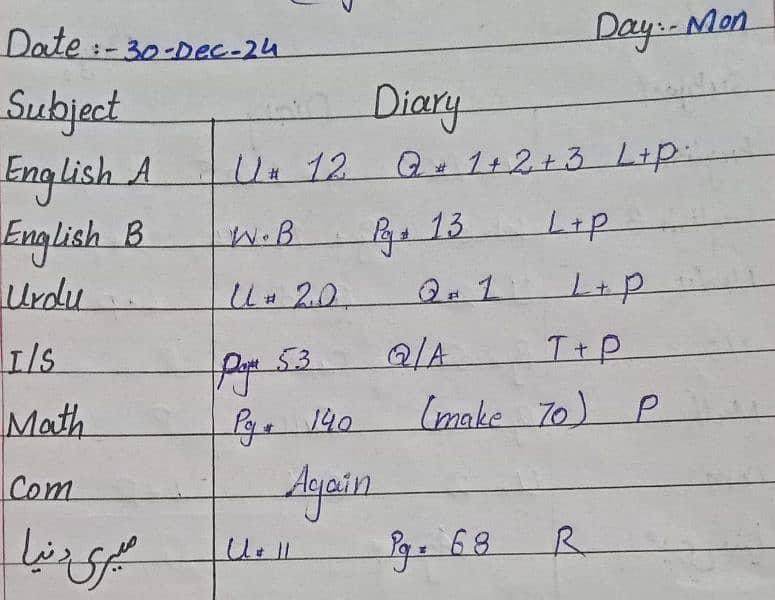 Date :- 30-Dec-24 Day:- Mon
Subject Diary
English A U# 12 Q# 1+2+3 L+P
English B W.B Pg# 13 L+P
Urdu U# 20 Q# 1 L+P
I/S Pg# 53 Q/A T+P
Math Pg# 140 (make 70) P
Com Again
میری دنیا U# 11 Pg# 68 R